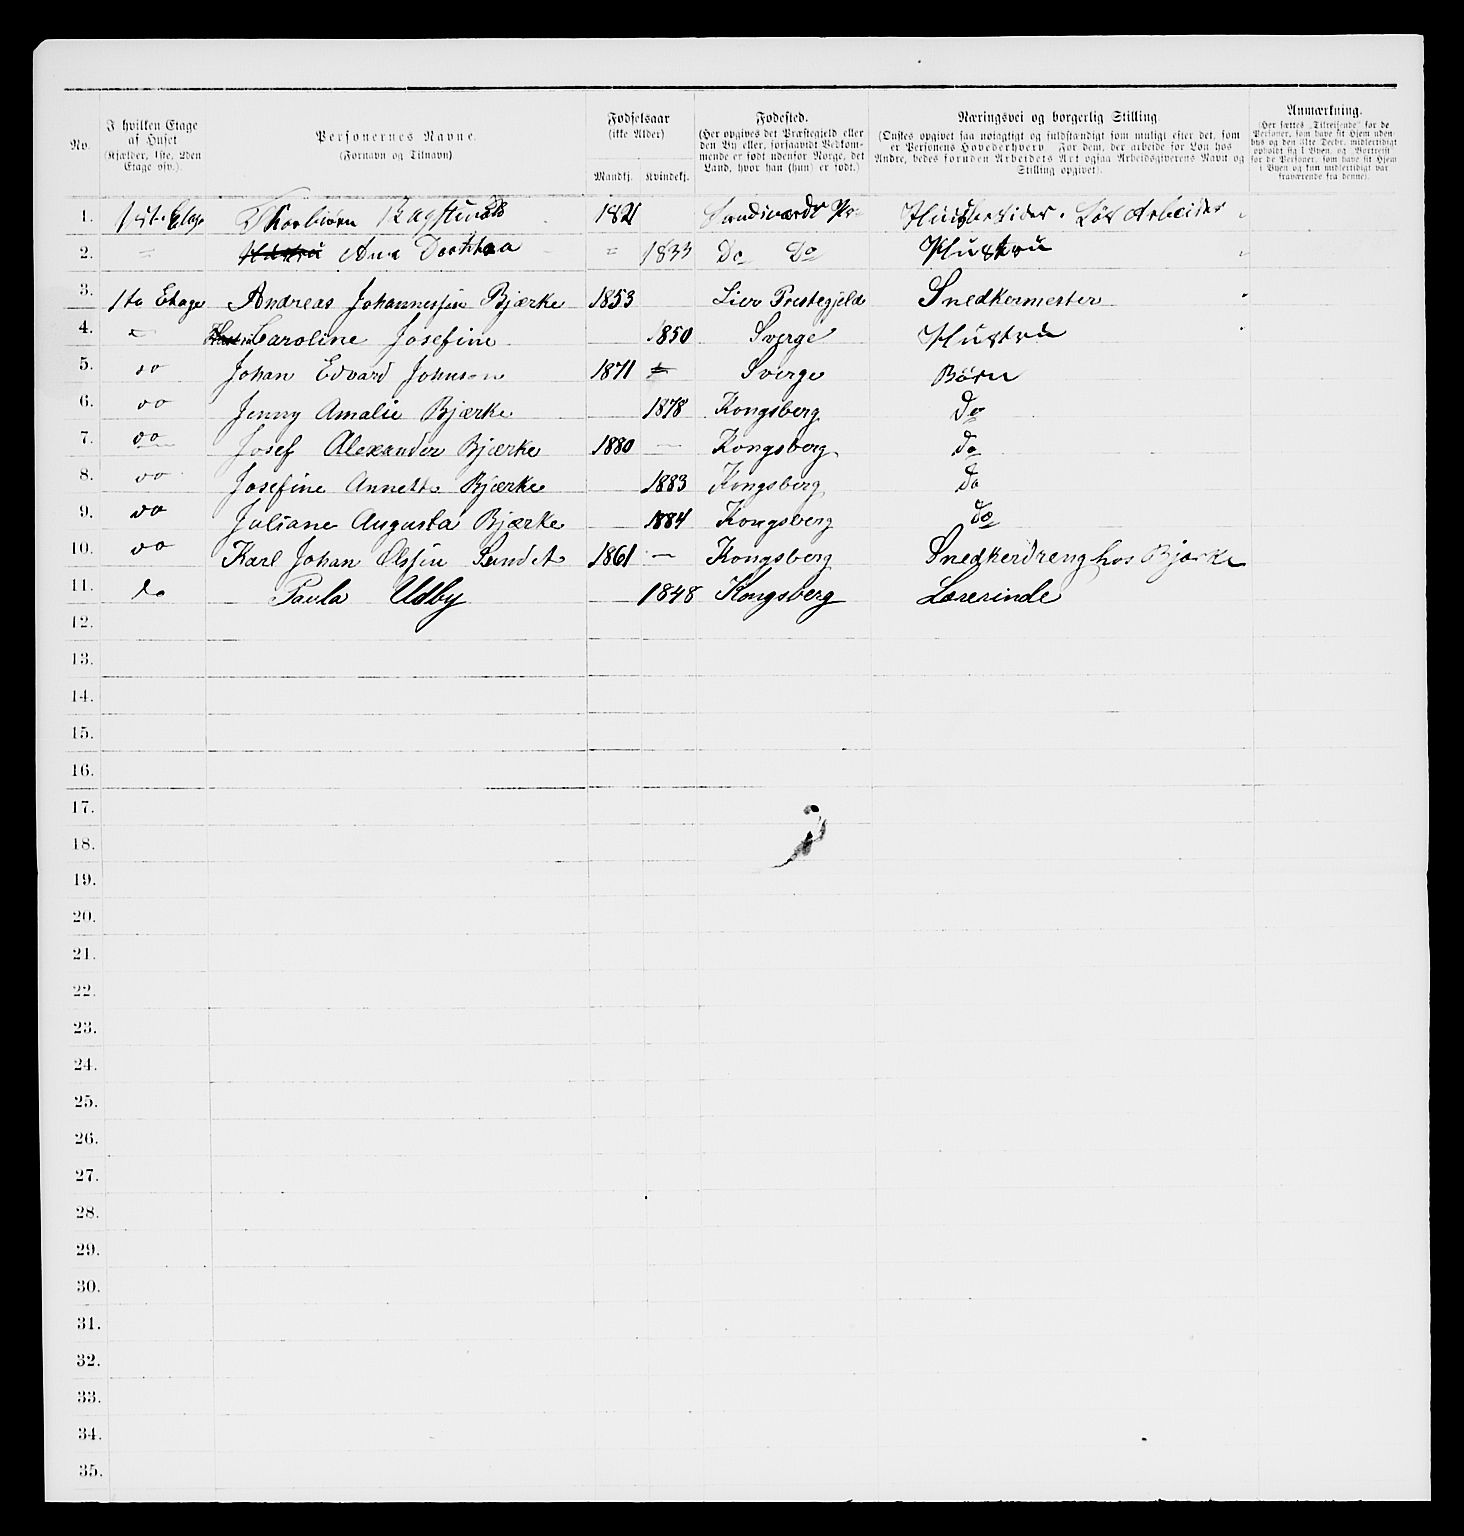 No. I hvilken Etage af Huset (Kjælder, 1ste, 2den Etage osv.). Personernes Navne. (Fornavn og Tilnavn) Fødselsaar (ikke Alder) Mandkj. Kvindekj. Fødested. (Her opgives det Præstegjeld eller den By eller, forsaavidt Vedkommende er født udenfor Norge, det Land, hvor han (hun) er født.) Næringsvei og borgerlig Stilling (Ønskes opgivet saa nøiagtigt og fuldstændigt som muligt efter det, som er Personens Hovederhverv. For dem, der arbeide for Løn hos Andre, bedes foruden Arbeidets Art ogsaa Arbeidsgiverens Navn og Stilling opgivet). Anmærkning. (Her sættes „Tilreisende“ for de Personer, som have sit Hjem udenbys og den 31te Decbr. midlertidigt opholdt sig i Byen, og „Bortreist“ for de Personer, som have sit Hjem i Byen og kun midlertidigt var fraværende fra denne).
1. 1ste Etage Thorbiørn 1821 Sandsværds Pr. Huusbesider. Løs Arbeider
2. " Hustru Ana Dorthea " 1833 Do Do Hustru
3. 1te Etage Andreas Johannessen Bjærke 1853 Lier Prestegjeld Snedkermester
4. " Hustru Caroline Josefine 1850 Sverge Hustru
5. do Johan Edvard Johnsen 1871 Sverge Børn
6. do Jenny Amalie Bjærke 1878 Kongsberg do
7. do Josef Alexander Bjærke 1880 — Kongsberg do
8. do Josefine Annette Bjærke 1883 Kongsberg do
9. do Juliane Augusta Bjærke 1884 Kongsberg do
10. do Karl Johan Olssen Sundet 1861 — Kongsberg Snedkerdreng hos Bjærke
11. do Paula Udby 1848 Kongsberg Lærerinde
12.
13.
14.
15.
16.
17.
18.
19.
20.
21.
22.
23.
24.
25.
26.
27.
28.
29.
30.
31.
32.
33.
34.
35.